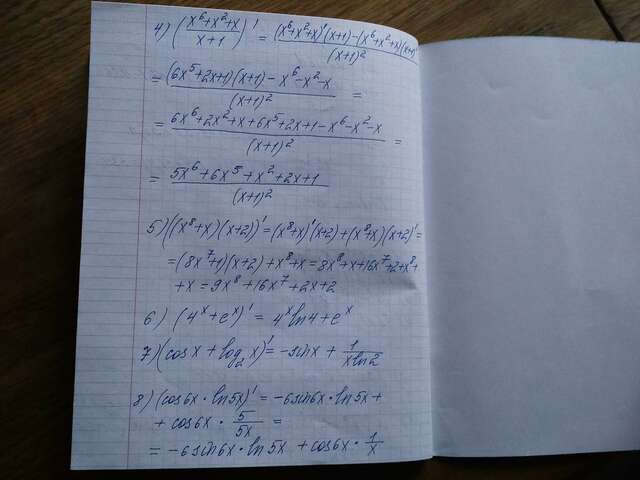 4) ((x⁶+x²+x)/(x+1))' = ((x⁶+x²+x)'(x+1)-(x⁶+x²+x)(x+1)')/(x+1)²
= ((6x⁵+2x+1)(x+1)-x⁶-x²-x)/(x+1)² =
= (6x⁶+2x²+x+6x⁵+2x+1-x⁶-x²-x)/(x+1)² =
= (5x⁶+6x⁵+x²+2x+1)/(x+1)²
5) ((x⁸+x)(x+2))' = (x⁸+x)'(x+2)+(x⁸+x)(x+2)' =
= (8x⁷+1)(x+2)+x⁸+x = 8x⁸+x+16x⁷+2+x⁸+
+x = 9x⁸+16x⁷+2x+2
6) (4ˣ+eˣ)' = 4ˣln4+eˣ
7) (cosx+log₂x)' = -sinx + 1/(xln2)
8) (cos6x·ln5x)' = -6sin6x·ln5x+
+ cos6x · 5/5x =
= -6sin6x·ln5x + cos6x · 1/x